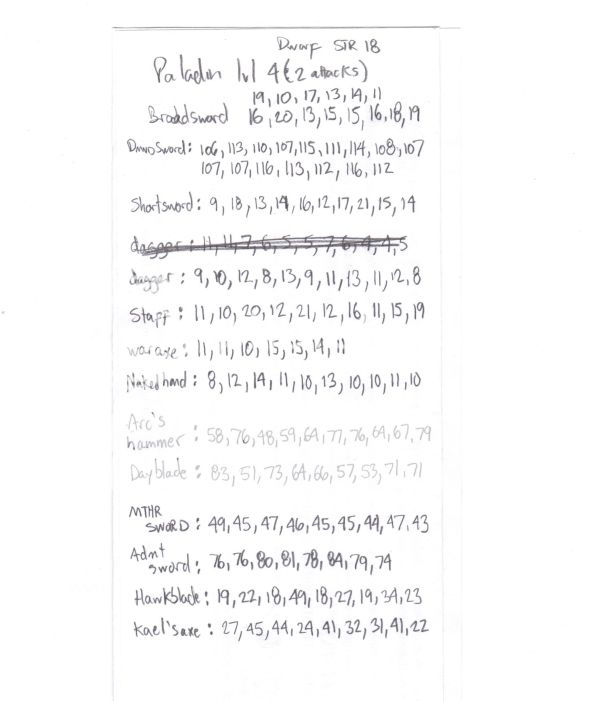 Dwarf STR 18
Paladin lvl 4 (2 attacks)
19, 10, 17, 13, 14, 11
Broadsword 16, 20, 13, 15, 15, 16, 18, 19
sword: 106, 113, 110, 107, 115, 111, 114, 108, 107
107, 107, 116, 113, 112, 116, 112
Shortsword: 9, 18, 13, 14, 16, 12, 17, 21, 15, 14
dagger: 11, 11, 7, 6, 5, 5, 7, 6, 4, 4, 5
dagger: 9, 10, 12, 8, 13, 9, 11, 13, 11, 12, 8
Staff: 11, 10, 20, 12, 21, 12, 16, 11, 15, 19
waraxe: 11, 11, 10, 15, 15, 14, 11
Naked hand: 8, 12, 14, 11, 10, 13, 10, 10, 11, 10
Arc's
hammer: 58, 76, 48, 59, 64, 77, 76, 64, 67, 79
Dayblade: 83, 51, 73, 64, 66, 57, 53, 71, 71
MTHR
SWORD: 49, 45, 47, 46, 45, 45, 44, 47, 43
Admt
sword: 76, 76, 80, 81, 78, 84, 79, 74
Hawkblade: 19, 22, 18, 49, 18, 27, 19, 34, 23
Kael's axe: 27, 45, 44, 24, 41, 32, 31, 41, 22